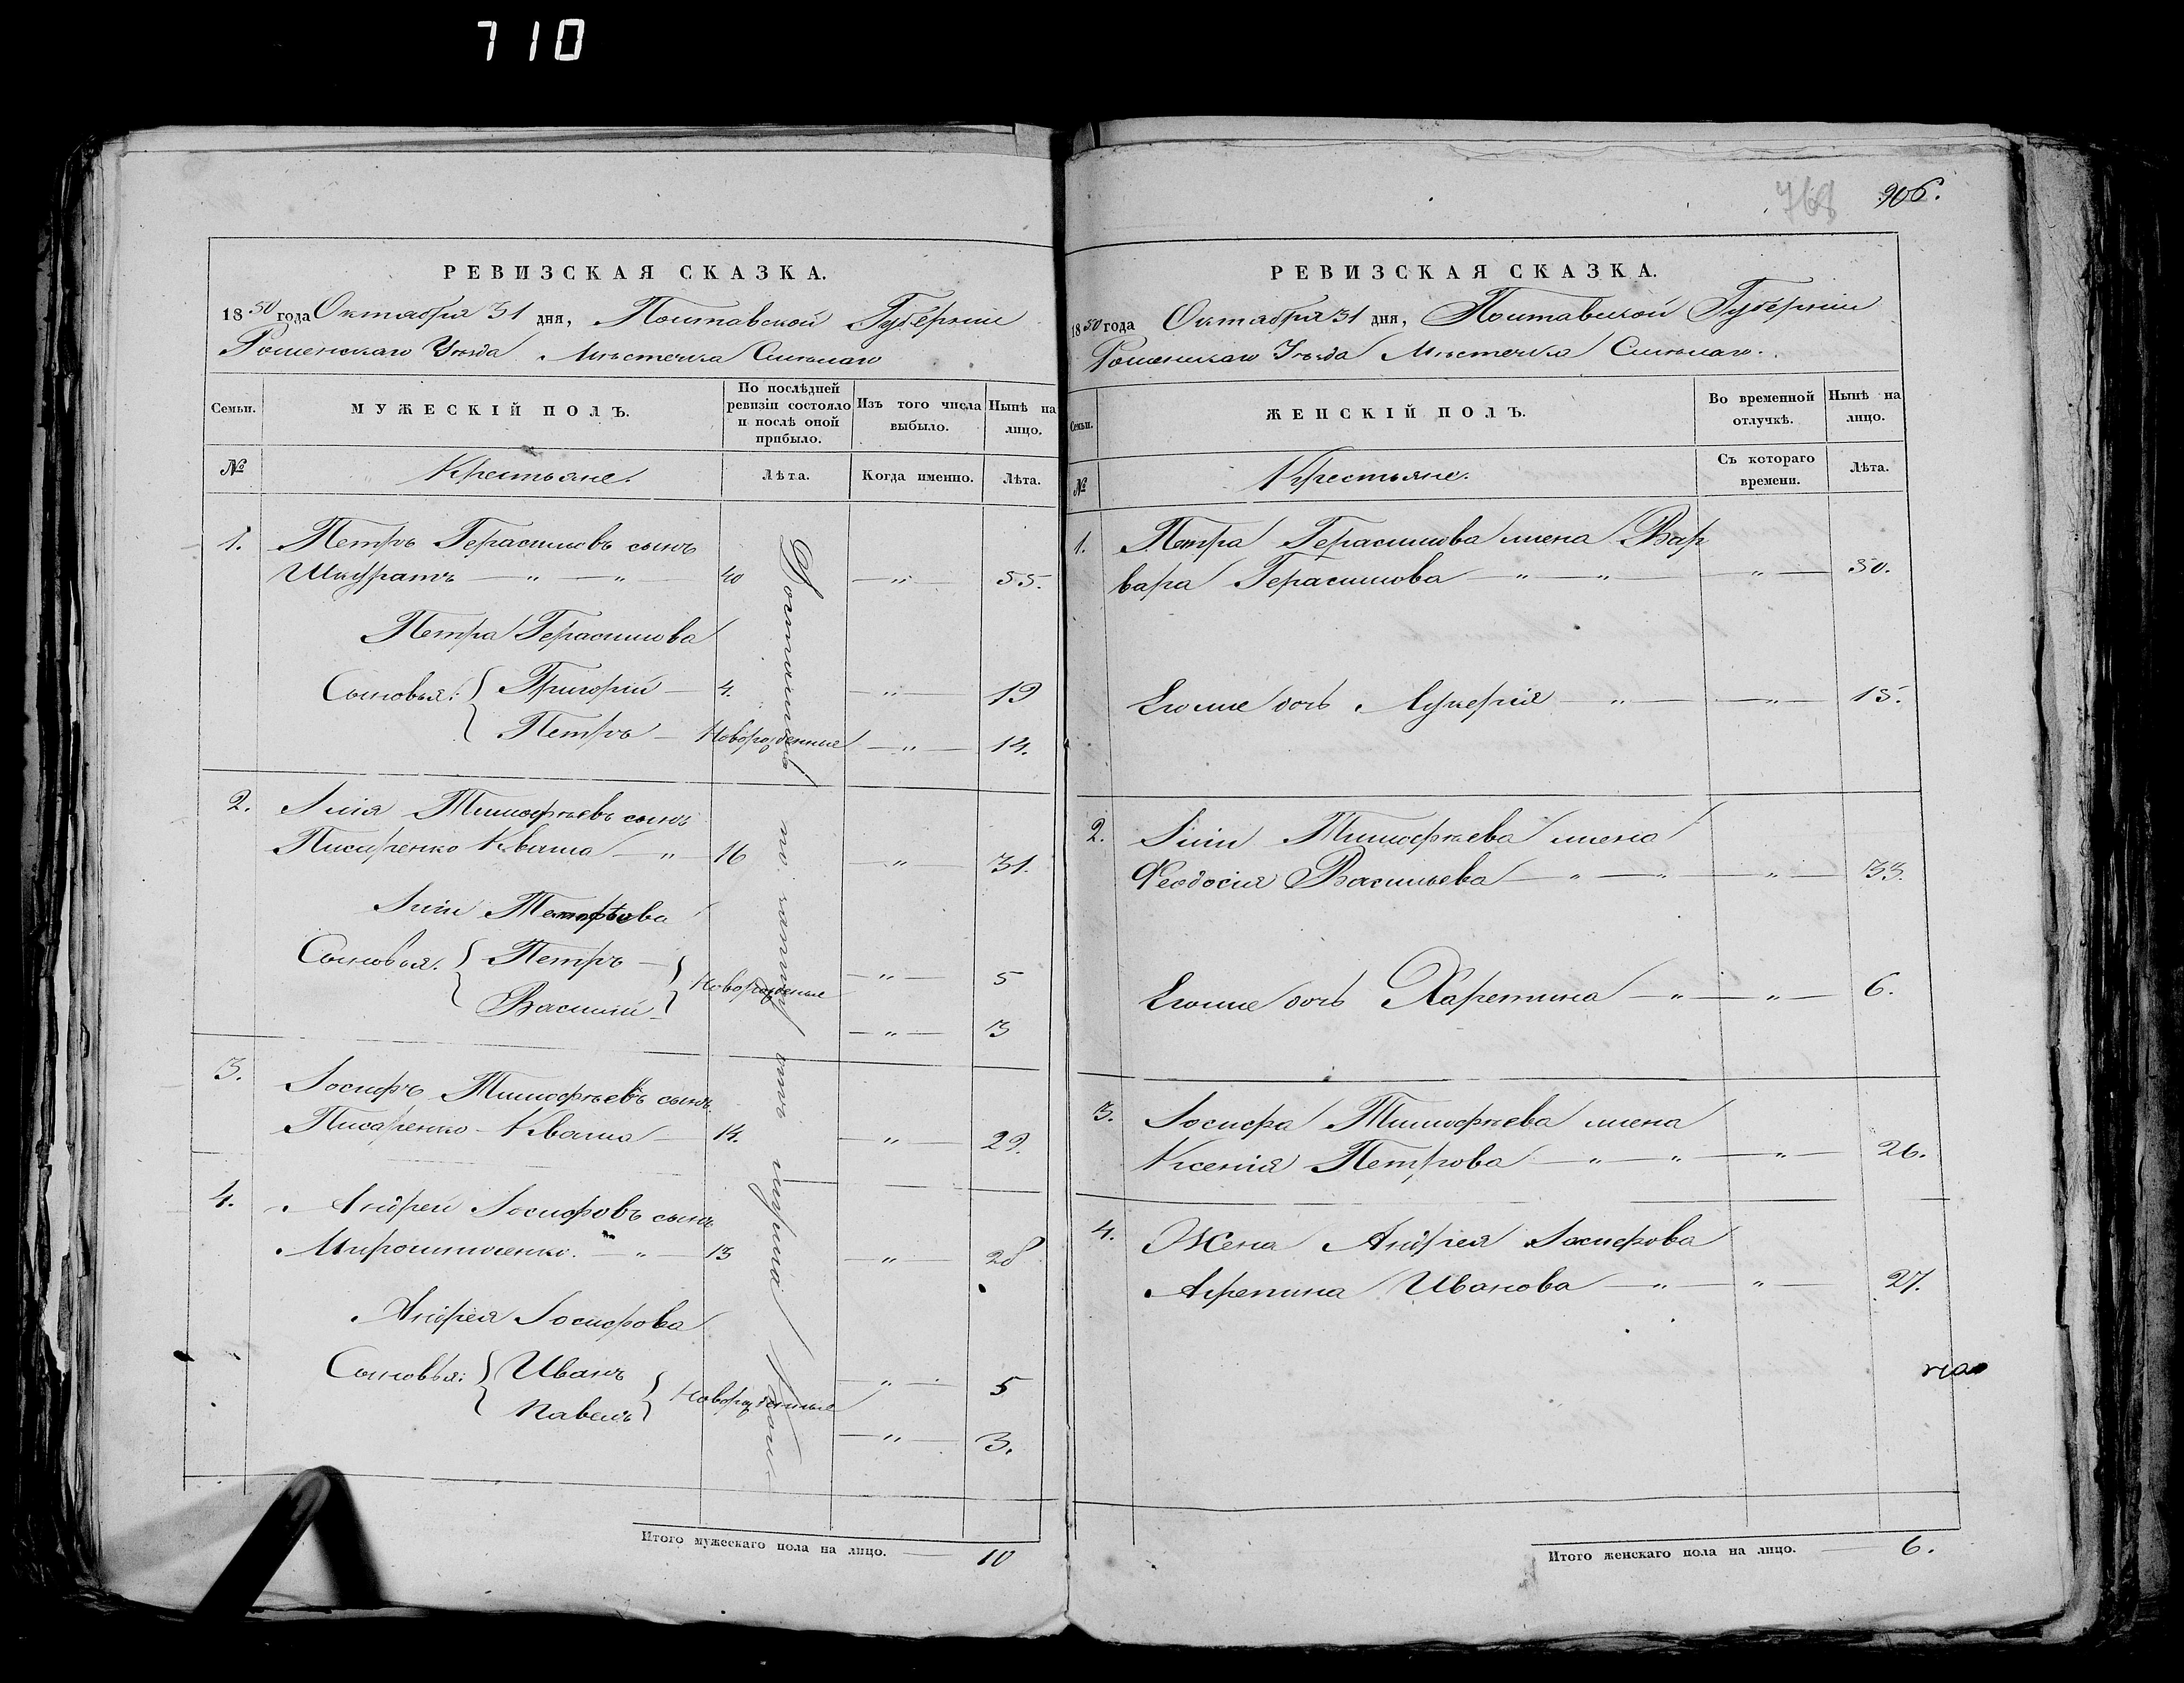 710
768
906.
РЕВИЗСКАЯ СКАЗКА.
1850 года Октября 31 дня, Полтавской Губерніи
Роменскаго Уѣзда Мѣстечка Смѣлаго
Семьи.
МУЖЕСКІЙ ПОЛЪ.
По послѣдней ревизіи состояло и послѣ оной прибыло.
Изъ того числа выбыло.
Нынѣ на лицо.
№
Крестьяне.
Лѣта.
Когда именно.
Лѣта.
1. Петръ Герасимовъ сынъ
Шафранъ — " — " 40 — " — 55.
Петра Герасимова
Сыновья: Григорій — 4. " — 19
Петръ — Новорожденные — " — 14.
2. Илія Тимофѣевъ сынъ
Писаренко Кваша — " — 16 — " — 31.
Иліи Тимофѣева
Сыновья. Петръ — — " — 5
Василій — Новорожденые — " — 3
3. Іосифъ Тимофѣевъ сынъ
Писаренко-Кваша — 14. — " — 29.
4. Андрей Іосифовъ сынъ
Мирошниченко. — " — 13 — " — 28
Андрея Іосифова
Сыновья: Иванъ — " — 5
Павелъ Новорожденные — " — 3.
Итого мужескаго пола на лицо. — 10
РЕВИЗСКАЯ СКАЗКА.
1850 года Октября 31 дня, Полтавской Губерніи
Роменскаго Уѣзда Мѣстечка Смѣлаго.
Семьи.
ЖЕНСКІЙ ПОЛЪ.
Во временной отлучкѣ.
Нынѣ на лицо.
№
Крестьяне.
Съ котораго времени.
Лѣта.
1. Петра Герасимова жена Вар
вара Герасимова — " — " — " — 50.
Егоже дочь Лукерія — " — — " — 15.
2. Иліи Тимофѣева жена
Феодосія Васильева — " — " — " — 33.
Егоже дочь Харетина — " — " — 6.
3. Іосифа Тимофѣева жена
Ксенія Петрова — " — " — " — 26.
4. Жена Андрея Іосифова
Агрепина Иванова — " — " — 27.
Итого женскаго пола на лицо. — 6.